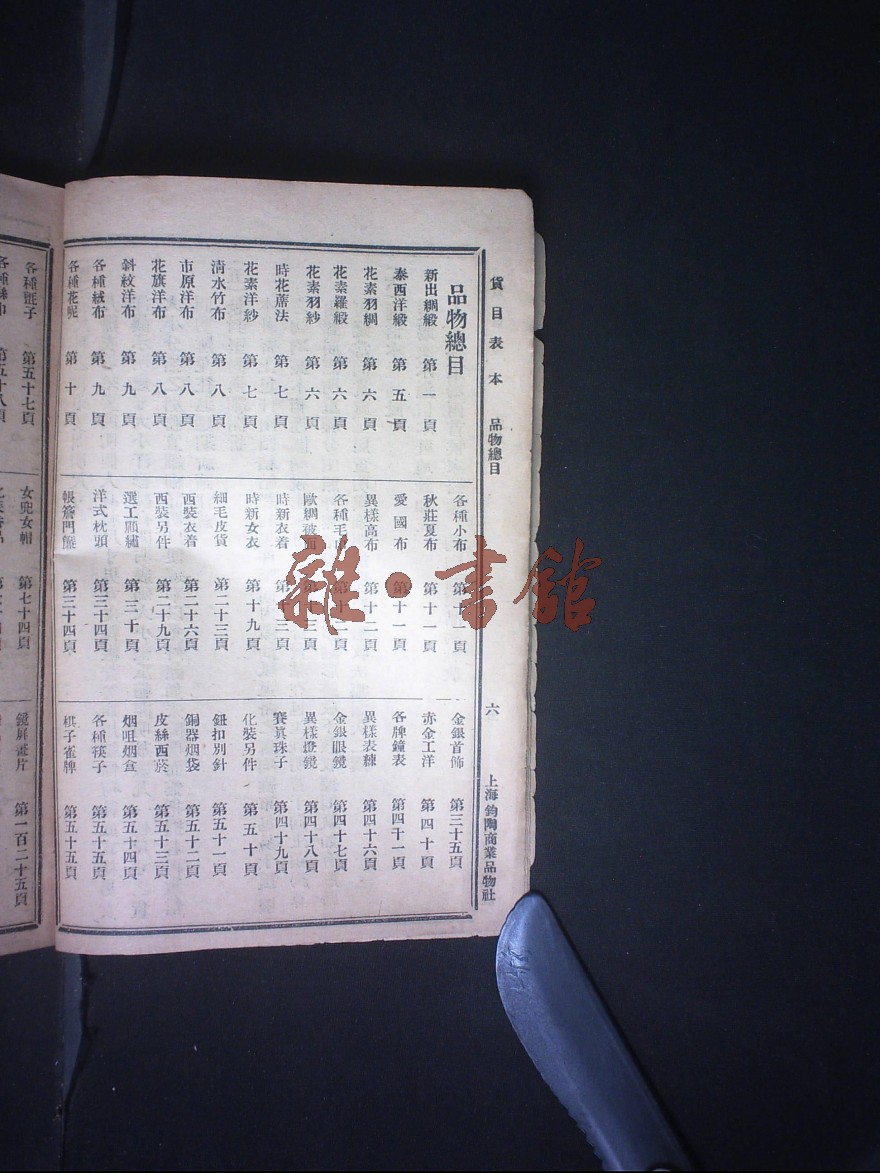 貨目表本 品物總目 六 上海鈞陶商業品物社
品物總目
新出綢緞 第一頁
泰西洋緞 第五頁
花素羽綢 第六頁
花素羅緞 第六頁
花素羽紗 第六頁
時花蓆法 第七頁
花素洋紗 第七頁
清水竹布 第八頁
市原洋布 第八頁
花旗洋布 第八頁
斜紋洋布 第九頁
各種絨布 第九頁
各種花呢 第十頁
各種小布 第十一頁
秋莊夏布 第十一頁
愛國布 第十一頁
異樣高布 第十二頁
各種毛
歐綢被面 第十三頁
時新衣着 第十三頁
時新女衣 第十九頁
細毛皮貨 第二十三頁
西裝衣着 第二十六頁
西裝另件 第二十九頁
選工顧繡 第三十頁
洋式枕頭 第三十四頁
帳簷門簾 第三十四頁
金銀首飾 第三十五頁
赤金工洋 第四十頁
各牌鐘表 第四十一頁
異樣表練 第四十六頁
金銀眼鏡 第四十七頁
異樣燈鏡 第四十八頁
賽眞珠子 第四十九頁
化裝另件 第五十頁
鈕扣別針 第五十一頁
銅器烟袋 第五十二頁
皮絲西菸 第五十三頁
烟咀烟盒 第五十四頁
各種筷子 第五十五頁
棋子雀牌 第五十五頁
各種氈子 第五十七頁
第五十八頁
女兜女帽 第七十四頁
鏡屏畫片 第一百二十五頁
雜·書館